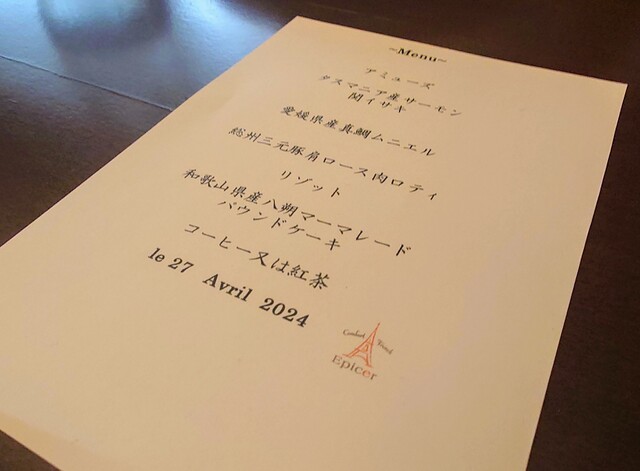 ~Menu~
アミューズ
タスマニア産サーモン
関イサキ
愛媛県産真鯛ムニエル
総州三元豚肩ロース肉ロティ
リゾット
和歌山県産八朔マーマレード
パウンドケーキ
コーヒー又は紅茶
le 27 Avril 2024
Epicer